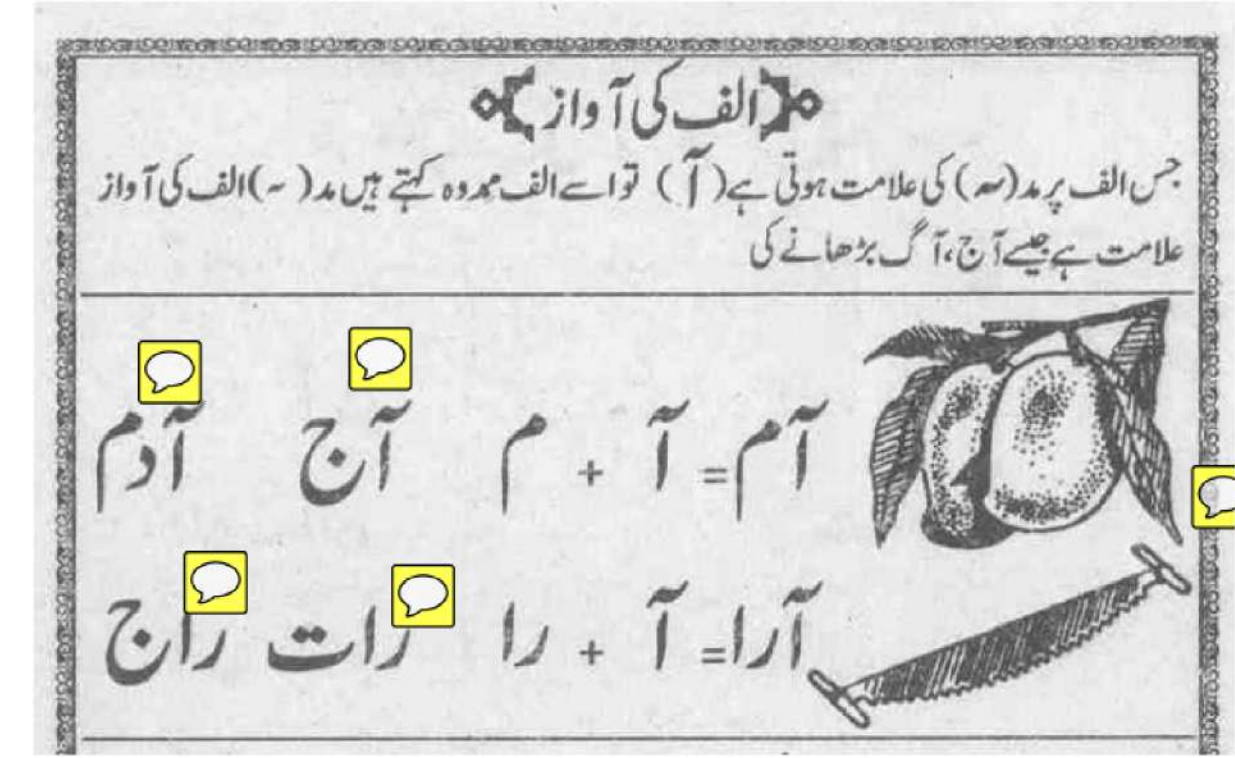 الف کی آواز
جس الف پر مد(سہ) کی علامت ہوتی ہے( آ ) تو اسے الف ممدوہ کہتے ہیں مد( ~ )الف کی آواز
علامت ہے جیسے آج، آگ بڑھانے کی
آم = آ + م آج آدم
آرا = آ + را رات راج